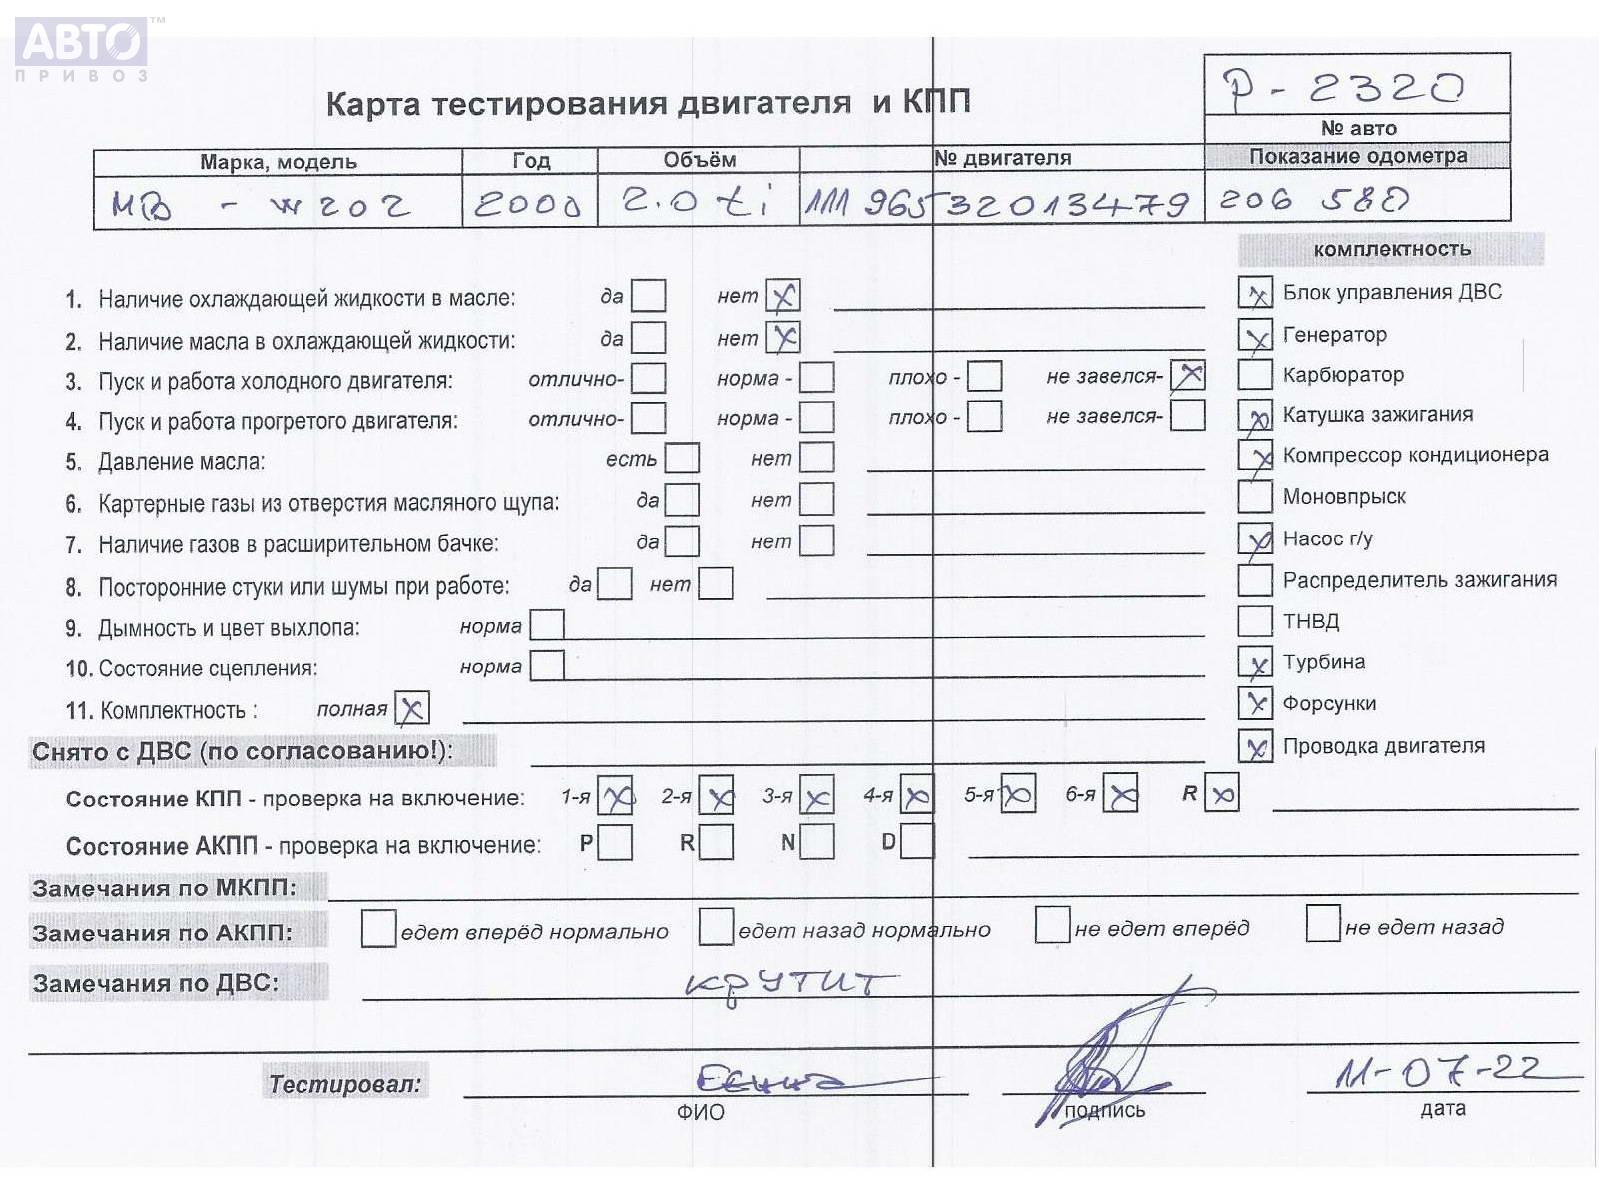 АВТО™
ПРИВОЗ
Р - 2320
Карта тестирования двигателя и КПП
№ авто
Марка, модель Год Объём № двигателя Показание одометра
МВ - w202 2000 2.0 ti 111 965 32013479 206 580
комплектность
1. Наличие охлаждающей жидкости в масле: да нет x
x Блок управления ДВС
2. Наличие масла в охлаждающей жидкости: да нет x
x Генератор
3. Пуск и работа холодного двигателя: отлично- норма - плохо - не завелся- x
Карбюратор
4. Пуск и работа прогретого двигателя: отлично- норма - плохо - не завелся-
x Катушка зажигания
5. Давление масла: есть нет
x Компрессор кондиционера
6. Картерные газы из отверстия масляного щупа: да нет
Моновпрыск
7. Наличие газов в расширительном бачке: да нет
x Насос г/у
8. Посторонние стуки или шумы при работе: да нет
Распределитель зажигания
9. Дымность и цвет выхлопа: норма
ТНВД
10. Состояние сцепления: норма
x Турбина
11. Комплектность : полная x
x Форсунки
Снято с ДВС (по согласованию!):
x Проводка двигателя
Состояние КПП - проверка на включение: 1-я x 2-я x 3-я x 4-я x 5-я x 6-я x R x
Состояние АКПП - проверка на включение: P R N D
Замечания по МКПП:
Замечания по АКПП: едет вперёд нормально едет назад нормально не едет вперёд не едет назад
Замечания по ДВС: крутит
Тестировал: 11-07-22
ФИО подпись дата